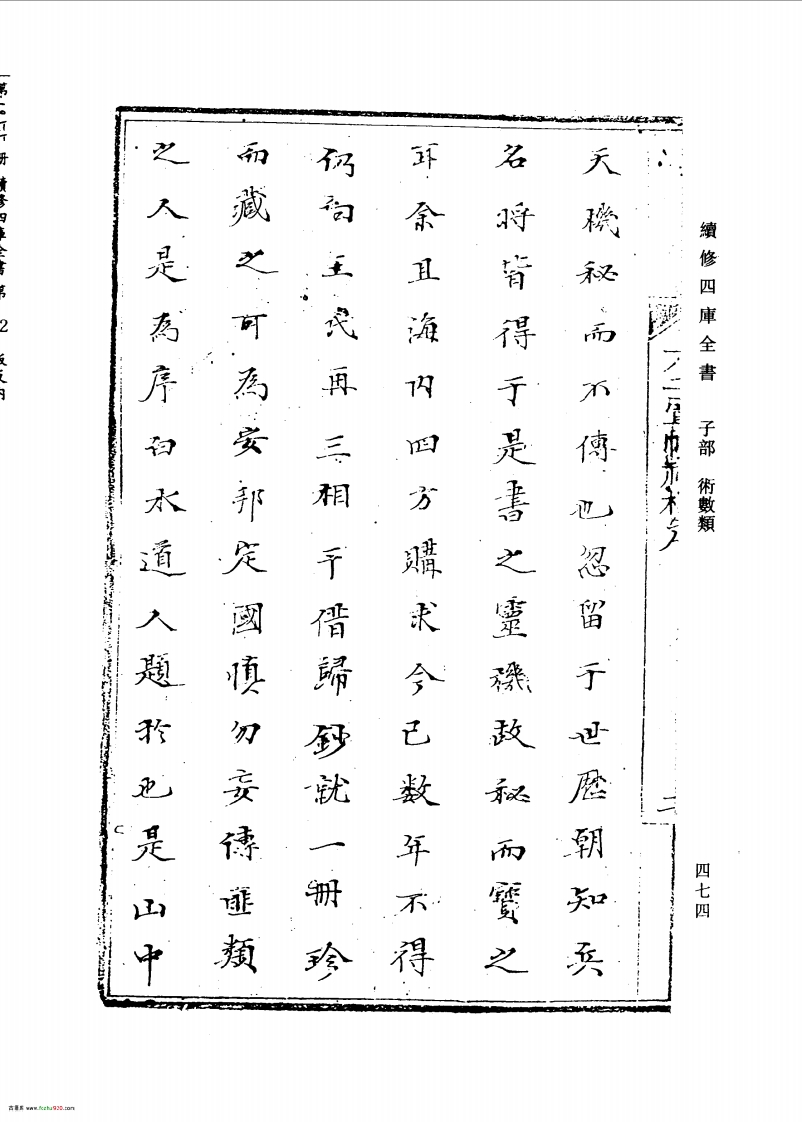 續修四庫全書 子部 術數類
四七四
二
天機秘而不傳也忽留于世歷朝知兵
名將皆得于是書之靈機故秘而寶之
耳余且海内四方購求今已数年不得
仍向王氏再三相干借歸鈔就一冊珍
而藏之可為安邦定國慎勿妄傳匪類
之人是為序白水道人題於也是山中
古易库 www.fczhu920.com